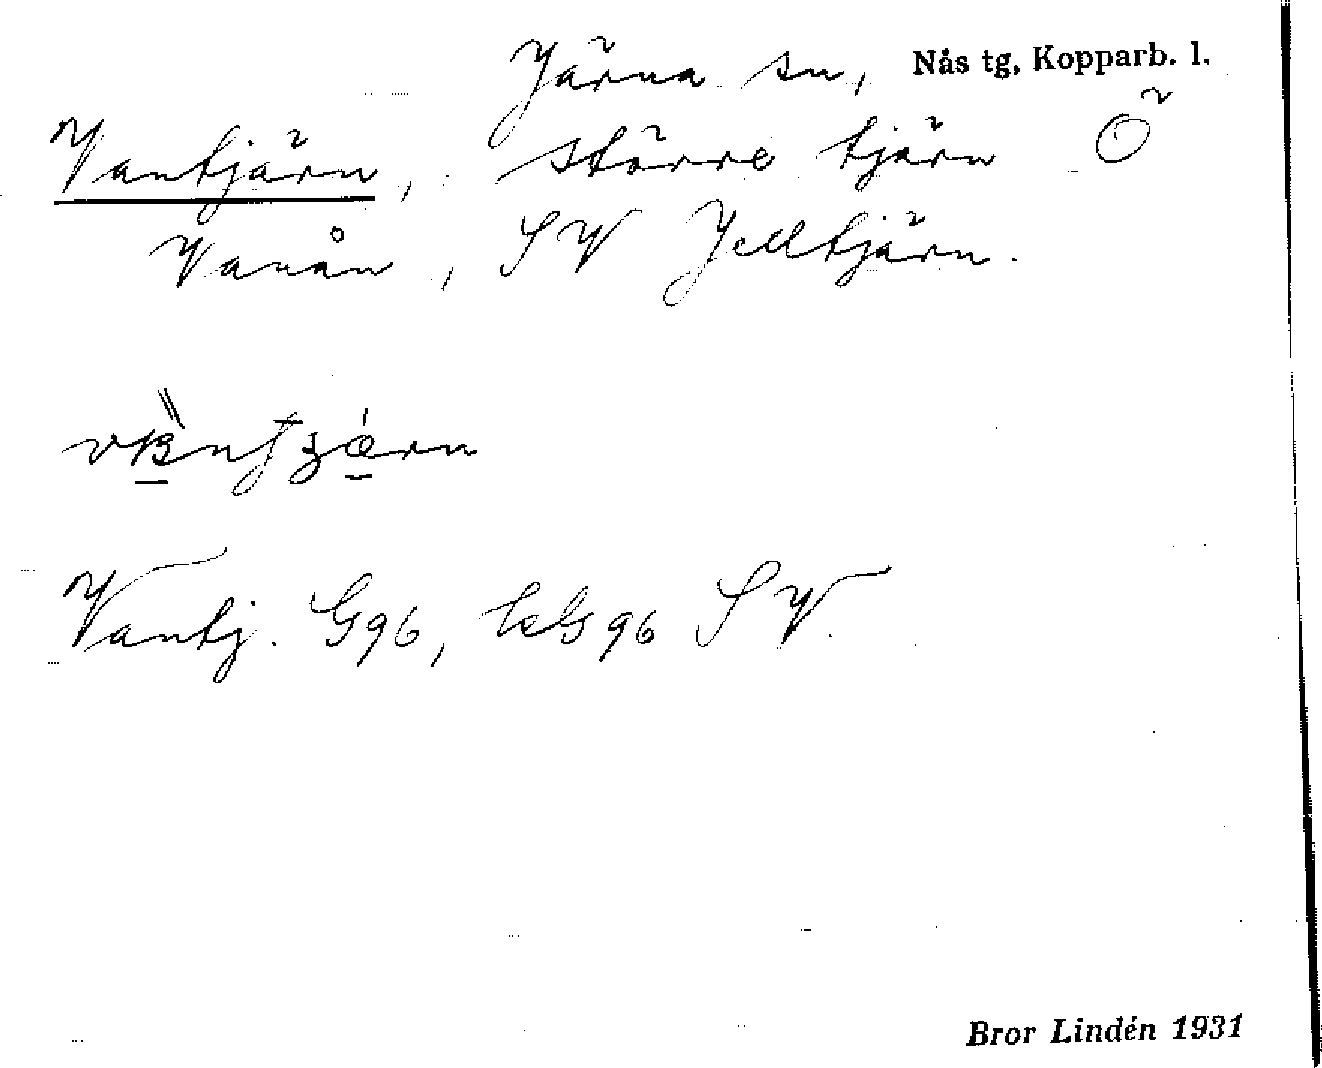 Järna sn, Nås tg, Kopparb. l.
Vantjärn, större tjärn Ö
Vanån, SV Jelltjärn.
Vantj. G96, LG96 SV.
Bror Lindén 1931